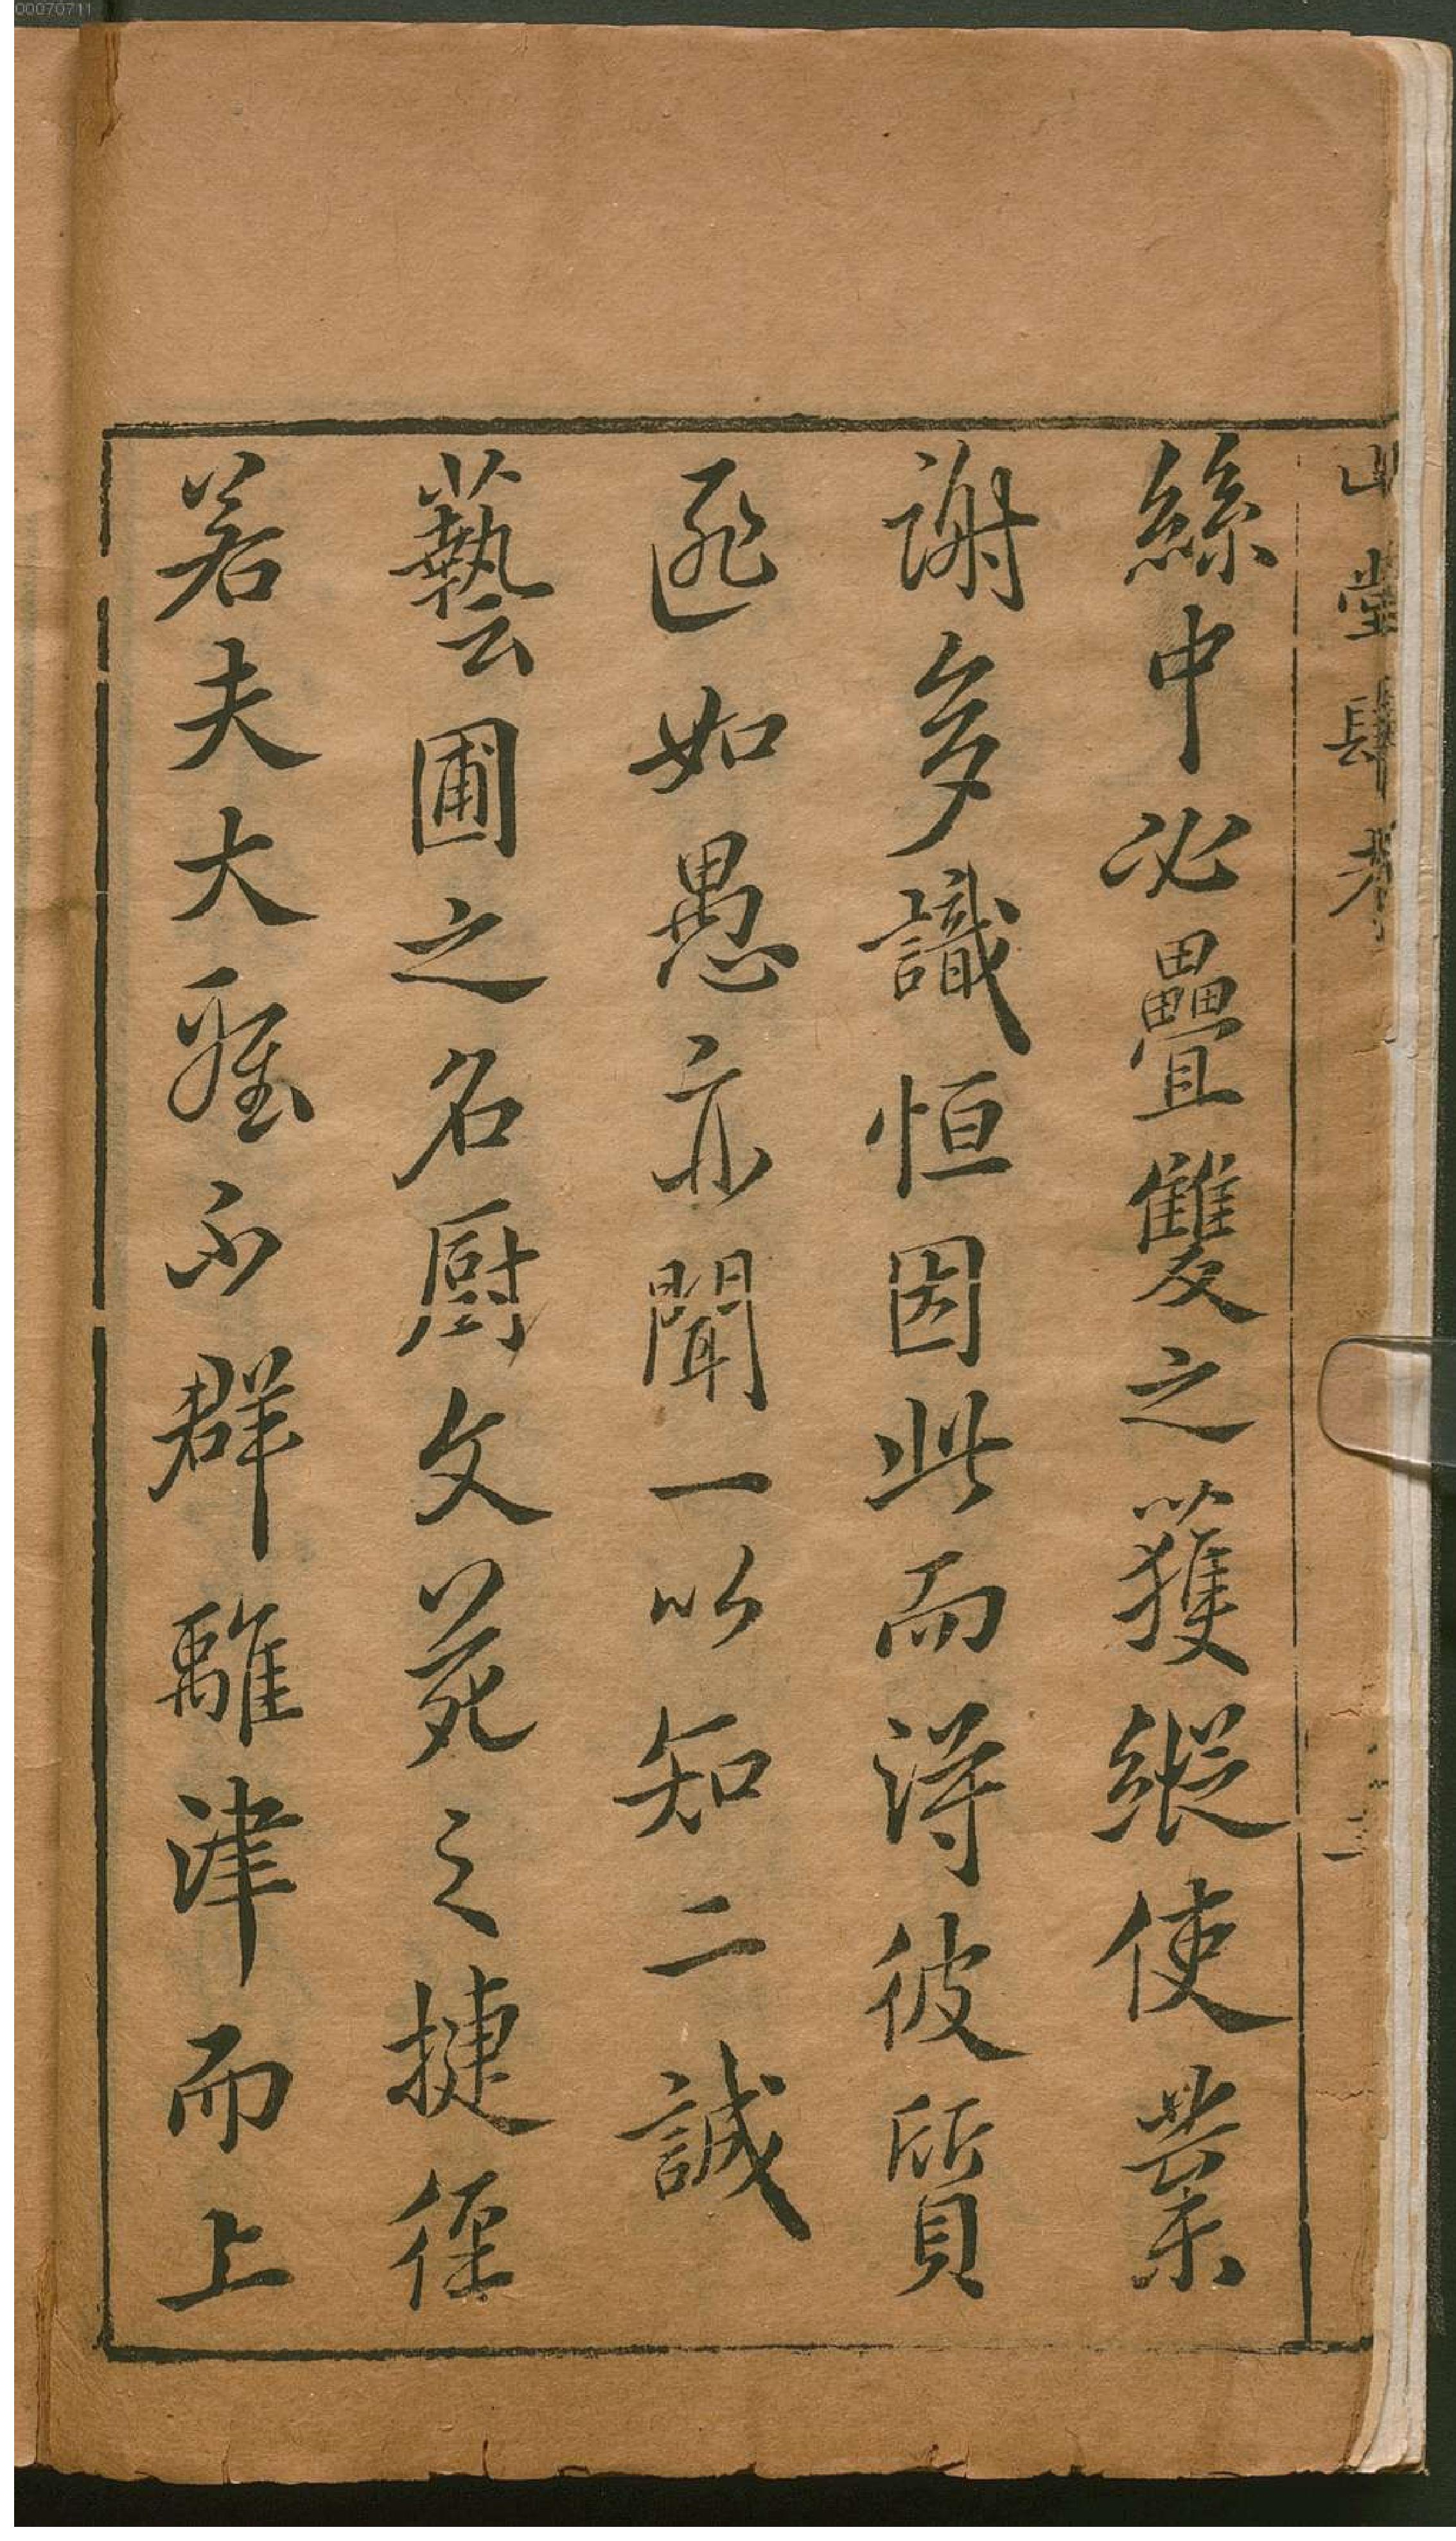 00070711
山堂肆考
二
絲中必疊雙之獲縱使業
謝多識恒因此而得彼質
匪如愚亦聞一以知二誠
藝圃之名厨文苑之捷徑
若夫大雅不群離津而上